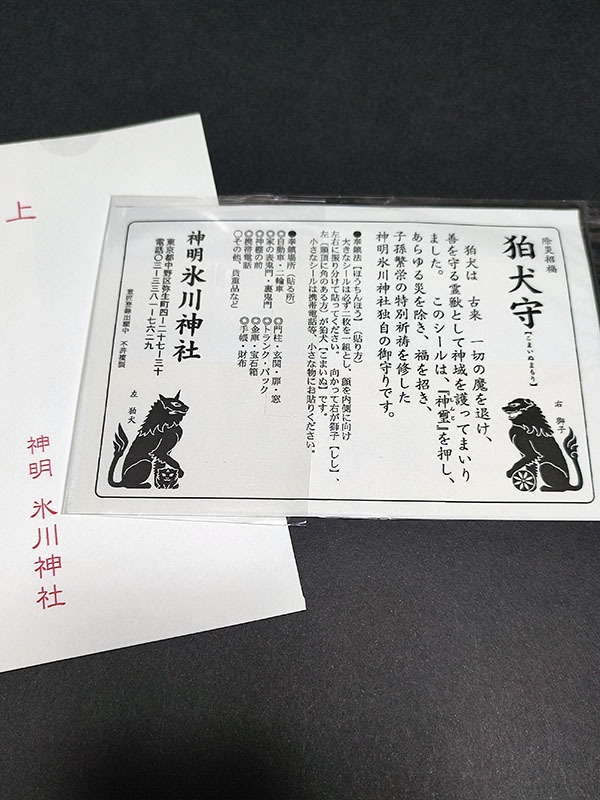 除災招福
狛犬守【こまいぬまもり】
右 獅子
狛犬は 古来 一切の魔を退け、
善を守る霊獣として神域を護ってまいり
ました。 このシールは、『神璽』を押し、
あらゆる災を除き、福を招き、
子孫繁栄の特別祈祷を修した
神明氷川神社独自の御守りです。
●奉鎮法【ほうちんほう】(貼り方)
大きなシールは必ず二枚を一組とし、顔を内側に向け
左右に振り分けて貼ってください。 向かって右が獅子【しし】、
左(頭頂に角のある方)が狛犬【こまいぬ】です。
小さなシールは携帯電話等、小さな物にお貼りください。
●奉鎮場所(貼る所)
◎自動車・二輪車 ◎門柱・玄関・扉・窓
◎家の表鬼門・裏鬼門 ◎トランク・バック
◎神棚の前 ◎金庫・宝石箱
◎携帯電話 ◎手帳・財布
○その他、貴重品など
神明氷川神社
東京都中野区弥生町四ー二七ー三十
電話〇三ー三三八一ー七六二九
意匠登録出願中 不許複製
左 狛犬
上
神明 氷川神社